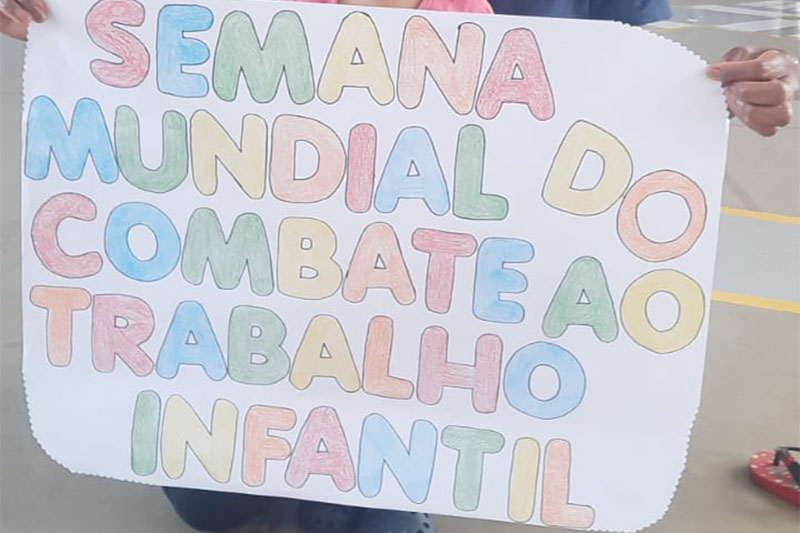 SEMANA
MUNDIAL DO
COMBATE AO
TRABALHO
INFANTIL